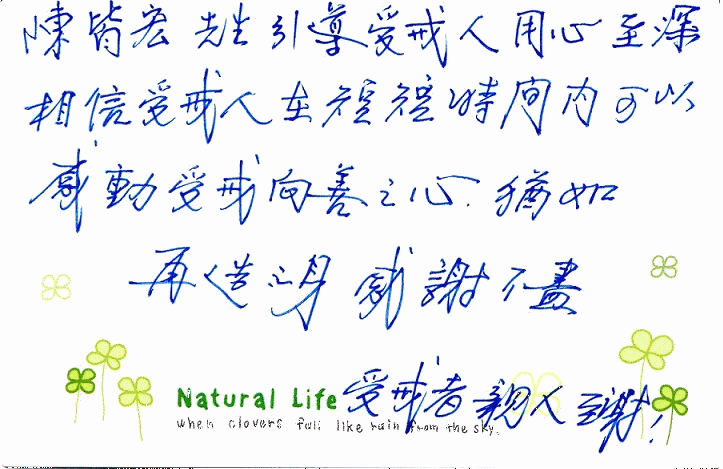 陳皆宏先生引導受戒人用心至深
相信受戒人在短短時間內可以
感動受戒向善之心.猶如
再造心身感謝不盡
Natural Life 受戒者親人至謝!
when clovers fall like rain from the sky.